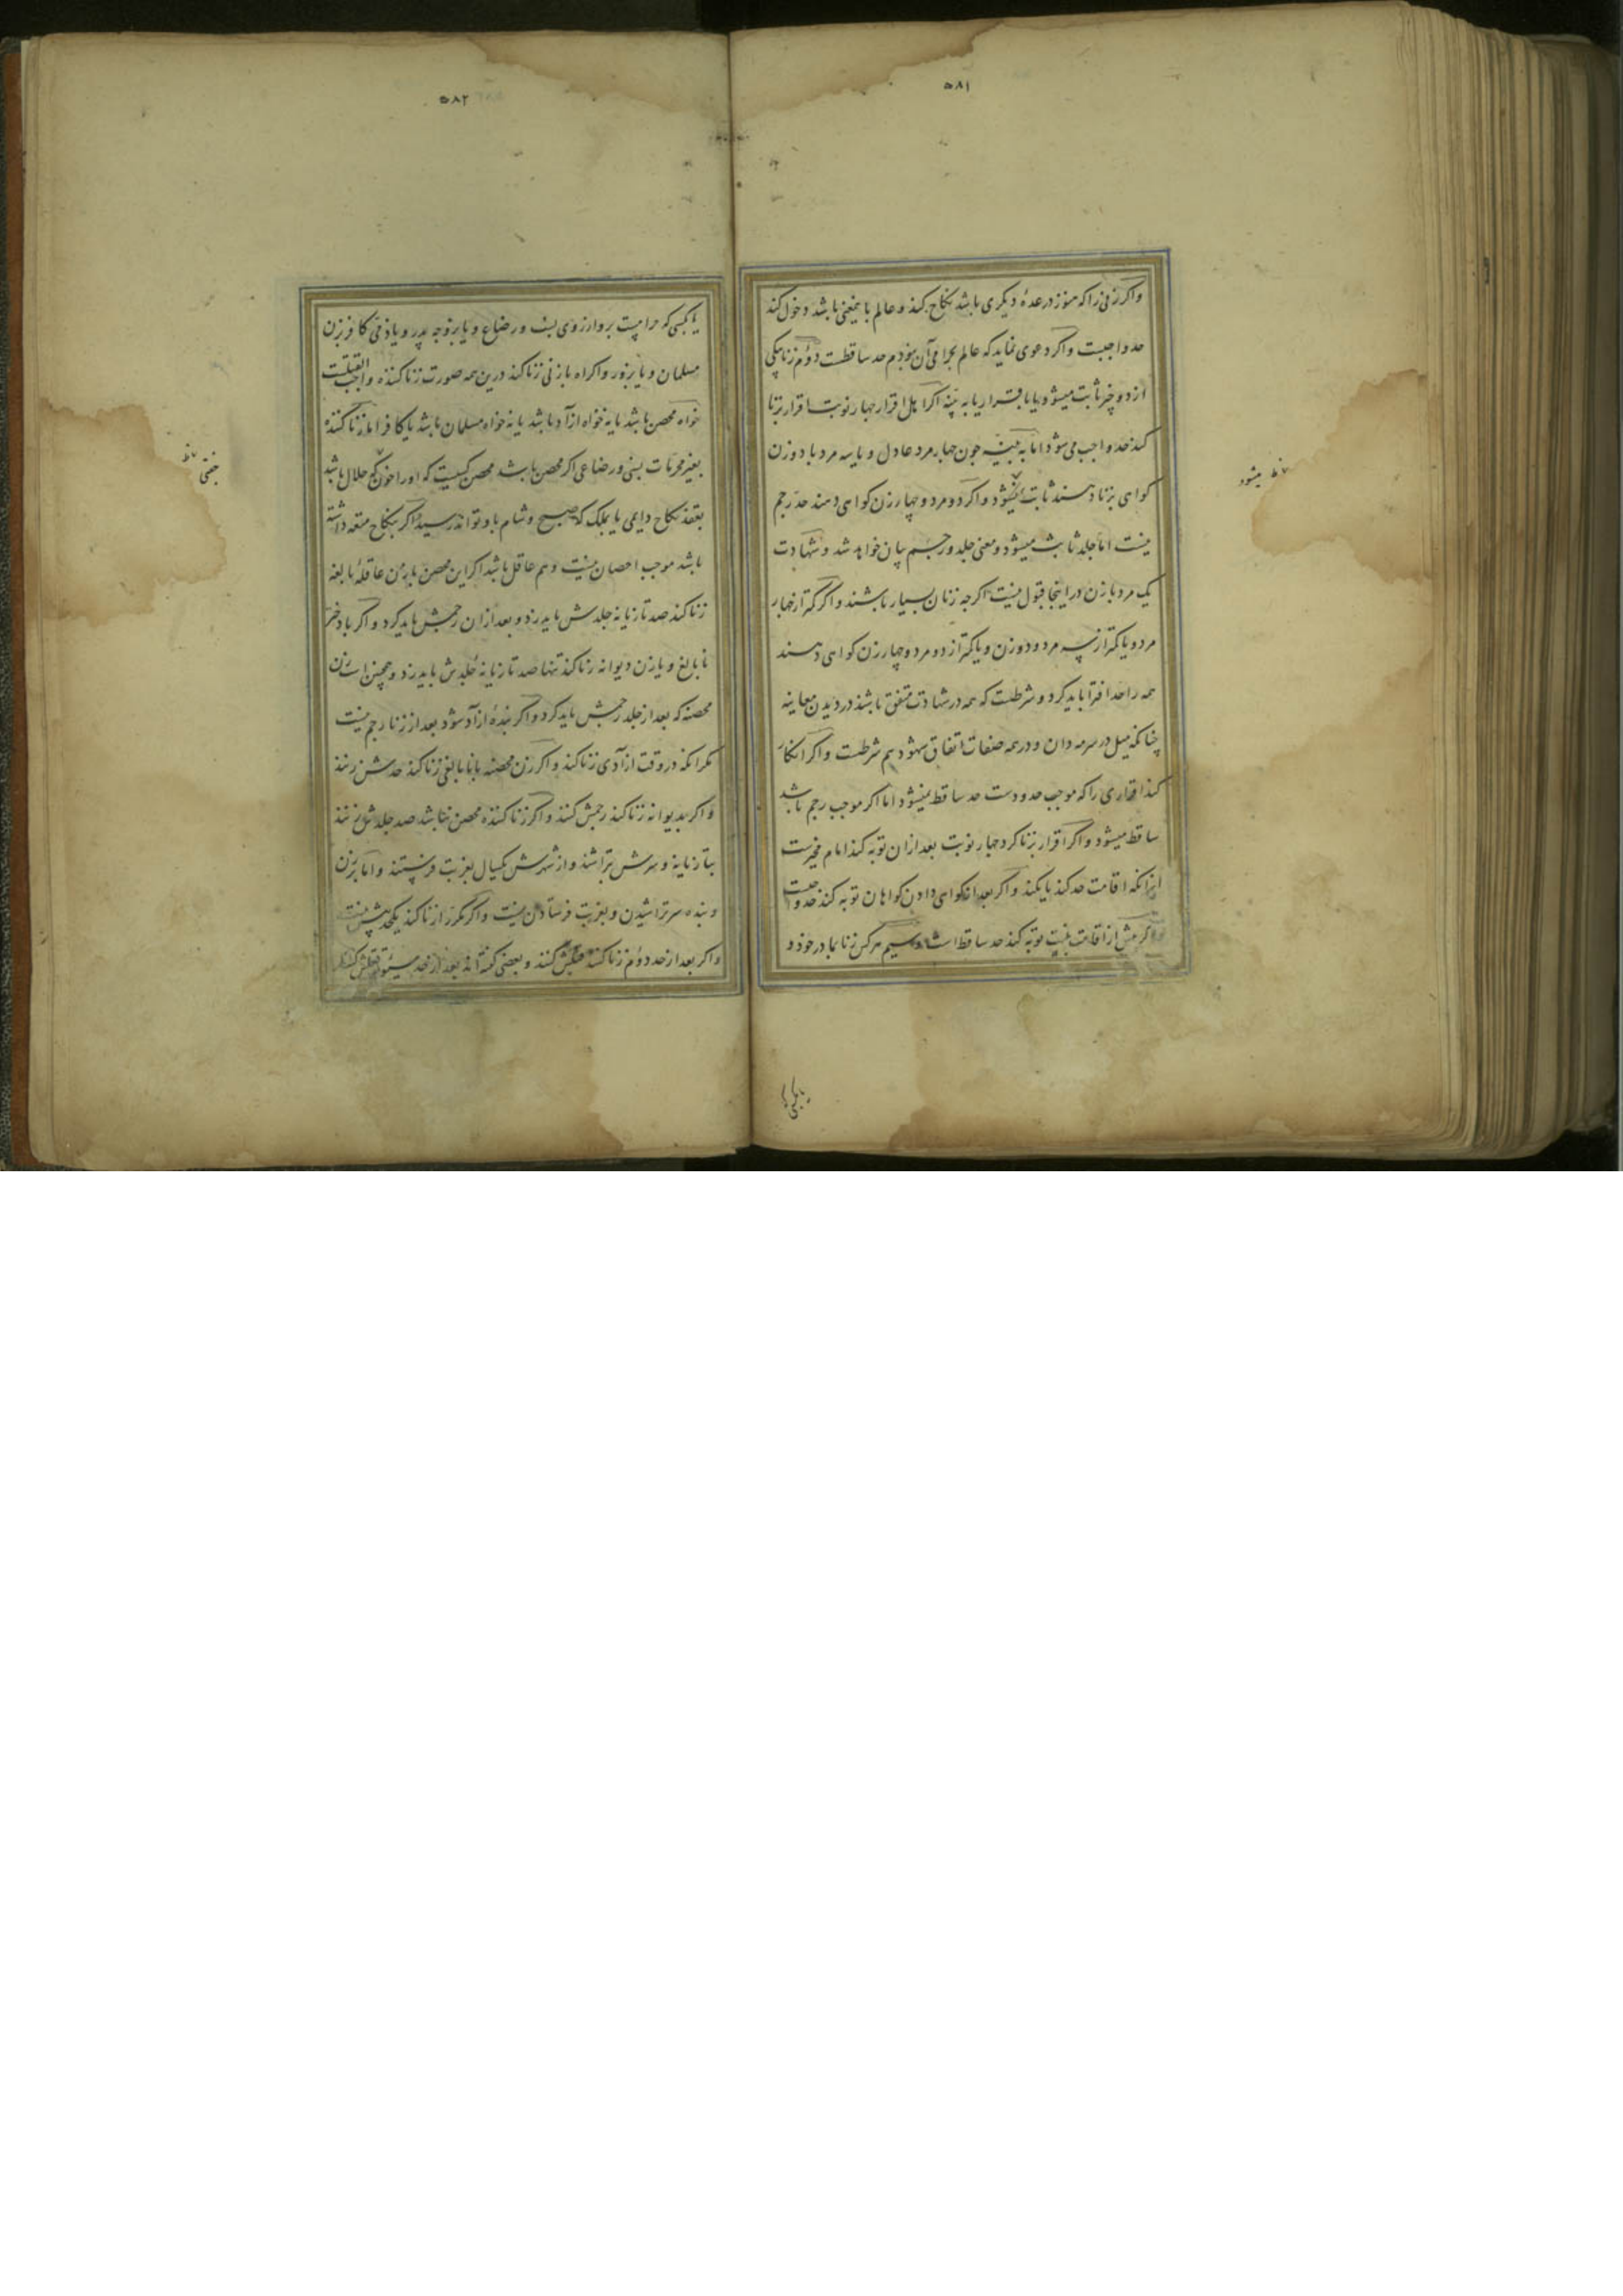 ۵۸۱
واکر زنی را که هنوز در عدهٔ دیکری باشد نکاح کند و عالم باینمعنی باشد دخول کند
حد واجبست واکر دعوی نماید که عالم بحرامی آن نبودم حد ساقطست دوم زنا بیکی
از دو چیز ثابت میشود یا باقرار یا به بینه اکر اهل اقرار چهار نوبت اقرار بزنا
کند حد واجب می شود اما به بینه چون چهار مرد عادل و یا سه مرد با دو زن
کواهی بزنا دهند ثابت میشود واکر دو مرد و چهار زن کواهی دهند حد رجم
نیست اما جلد ثابت میشود و معنی جلد و رجم بیان خواهد شد و شهادت
یک مرد با زن در اینجا قبول نیست اکرچه زنان بسیار باشند واکر کمتر از چهار
مرد و یا کمتر از سه مرد و دو زن و یا کمتر از دو مرد و چهار زن کواهی دهند
همه را حد افترا باید کرد و شرطست که همه در شهادت متفق باشند در دیدن معاینه
چنانکه میل در سرمه دان و در همه صفات اتفاق شهود هم شرطست واکر انکار
کند اقراری را که موجب حدودست حد ساقط نمیشود اما اکر موجب رجم باشد
ساقط میشود واکر اقرار بزنا کرد چهار نوبت بعد ازان توبه کند امام مخیرست
از انکه اقامت حد کند یا نکند واکر بعد از کواهی دادن کواهان توبه کند حد واجبست
واکر پیش از اقامت بینت توبه کند حد ساقط است سیم هرکس زنا با مادر خود و
نمیشود ظ
یا بکسی
۵۸۲
یا بکسی که حرامیست برو از روی نسب و رضاع و یا بزوجه پدر و یا ذمی کافر بزن
مسلمان و یا بزور واکراه با زنی زنا کند درین همه صورت زنا کننده واجب القتلست
خواه محصن باشد یا نه خواه ازآد باشد یا نه خواه مسلمان باشد یا کافر اما زنا کننده
بغیر محرمات نسبی و رضاعی اکر محصن باشد محصن کسیست که اورا حلال باشد
بعقد نکاح دایمی یا بملک که صبح و شام باو تواند رسید اکر بنکاح متعه داشته
باشد موجب احصان نیست و هم عاقل باشد اکر این محصن با زن عاقلهٔ بالغه
زنا کند صد تازیانه جلدش باید زد و بعد ازان رجمش باید کرد واکر با دختر
نابالغ و یا زن دیوانه زنا کند تنها صد تازیانه جلدش باید زد و همچنین است زن
محصنه که بعد از جلد رجمش باید کرد واکر بندهٔ ازآد شود بعد از زنا رجم نیست
مکر انکه در وقت ازآدی زنا کند واکر زن محصنه با نابالغی زنا کند حدش زنند
واکر بدیوانه زنا کند رجمش کنند واکر زنا کننده محصن نباشد صد جلدش زنند
بتازیانه و سرش تراشند و از شهرش یکسال بغربت فرستند و اما بر زن
و بنده سر تراشیدن و بغربت فرستادن نیست واکر مکرر زنا کند یکحد بیش نیست
واکر بعد از حد دوم زنا کند قتلش کنند و بعضی کفته اند بعد از حد سیم قتلش کنند